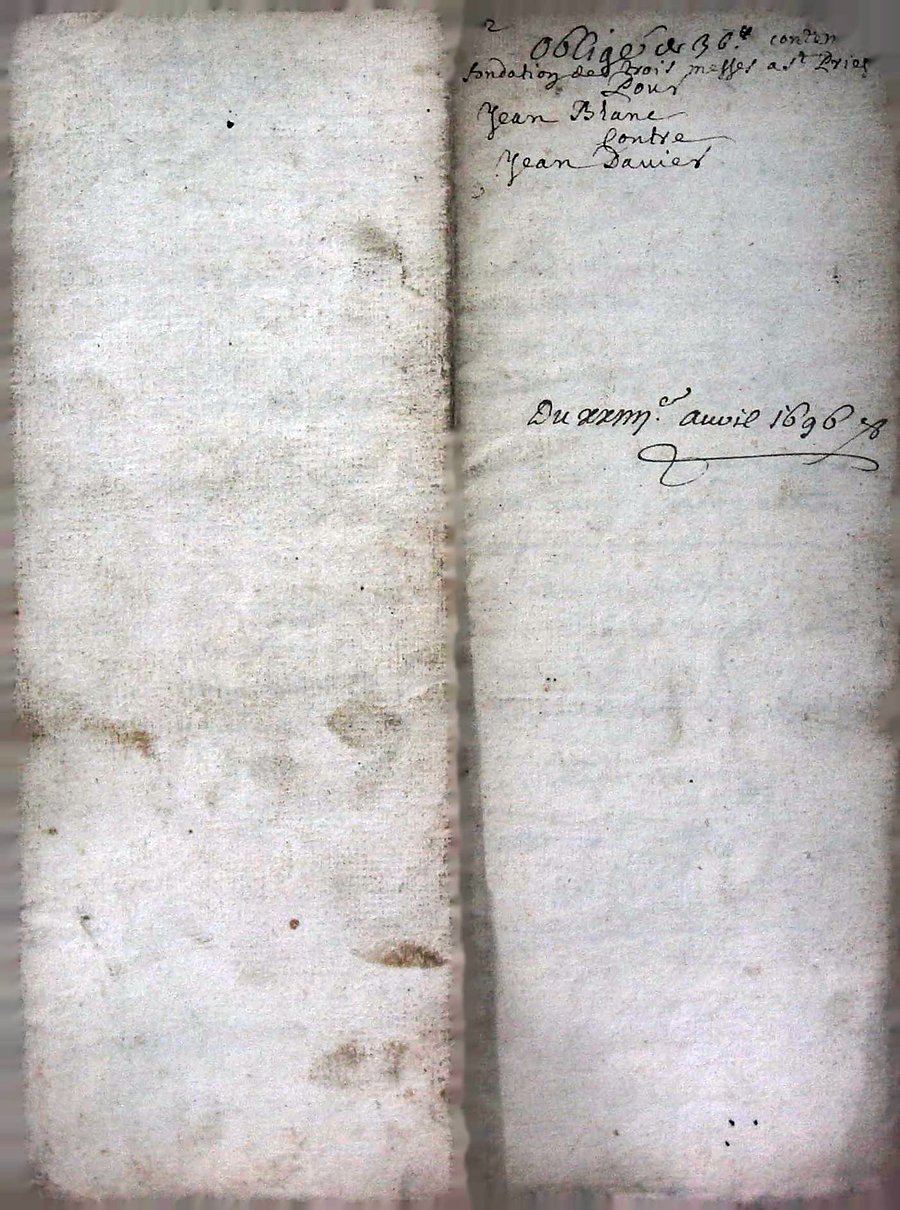 2
Obligé de 36.# conten
fondation des trois messes a St Priet
Pour
Jean Blanc
Contre
Jean Davier
Du xxiiii.e auvil 1696